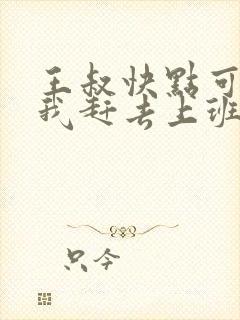 王叔快點可
我赶去上班
只今